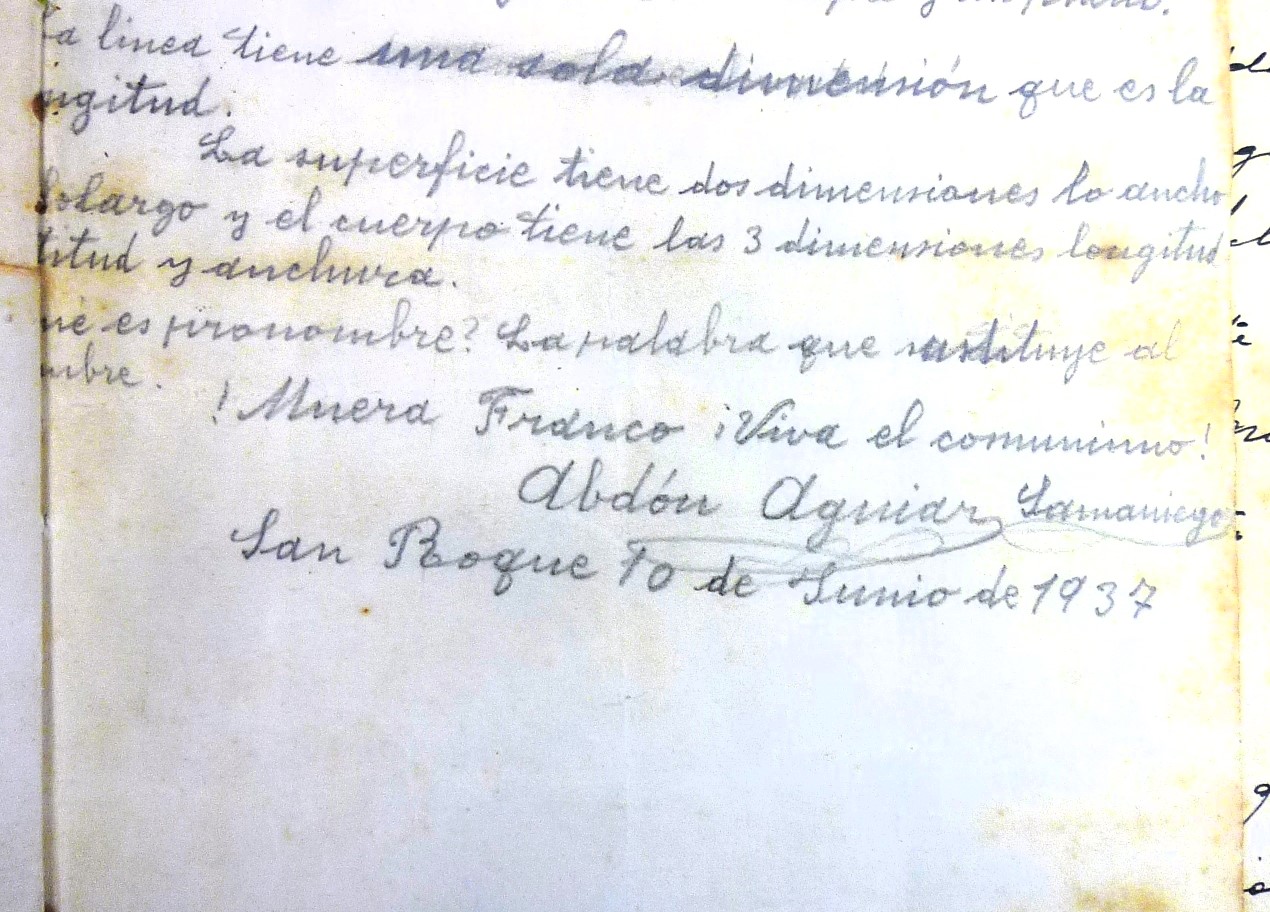 La linea tiene una sola dimensión que es la
ngitud.
La superficie tiene dos dimensiones lo ancho
lo largo y el cuerpo tiene las 3 dimensiones longitud
titud y anchura.
ué es pronombre? La palabra que sustituye al
mbre.
! Muera Franco ¡Viva el comunismo!
Abdón Aguiar Samaniego
San Roque 10 de Junio de 1937